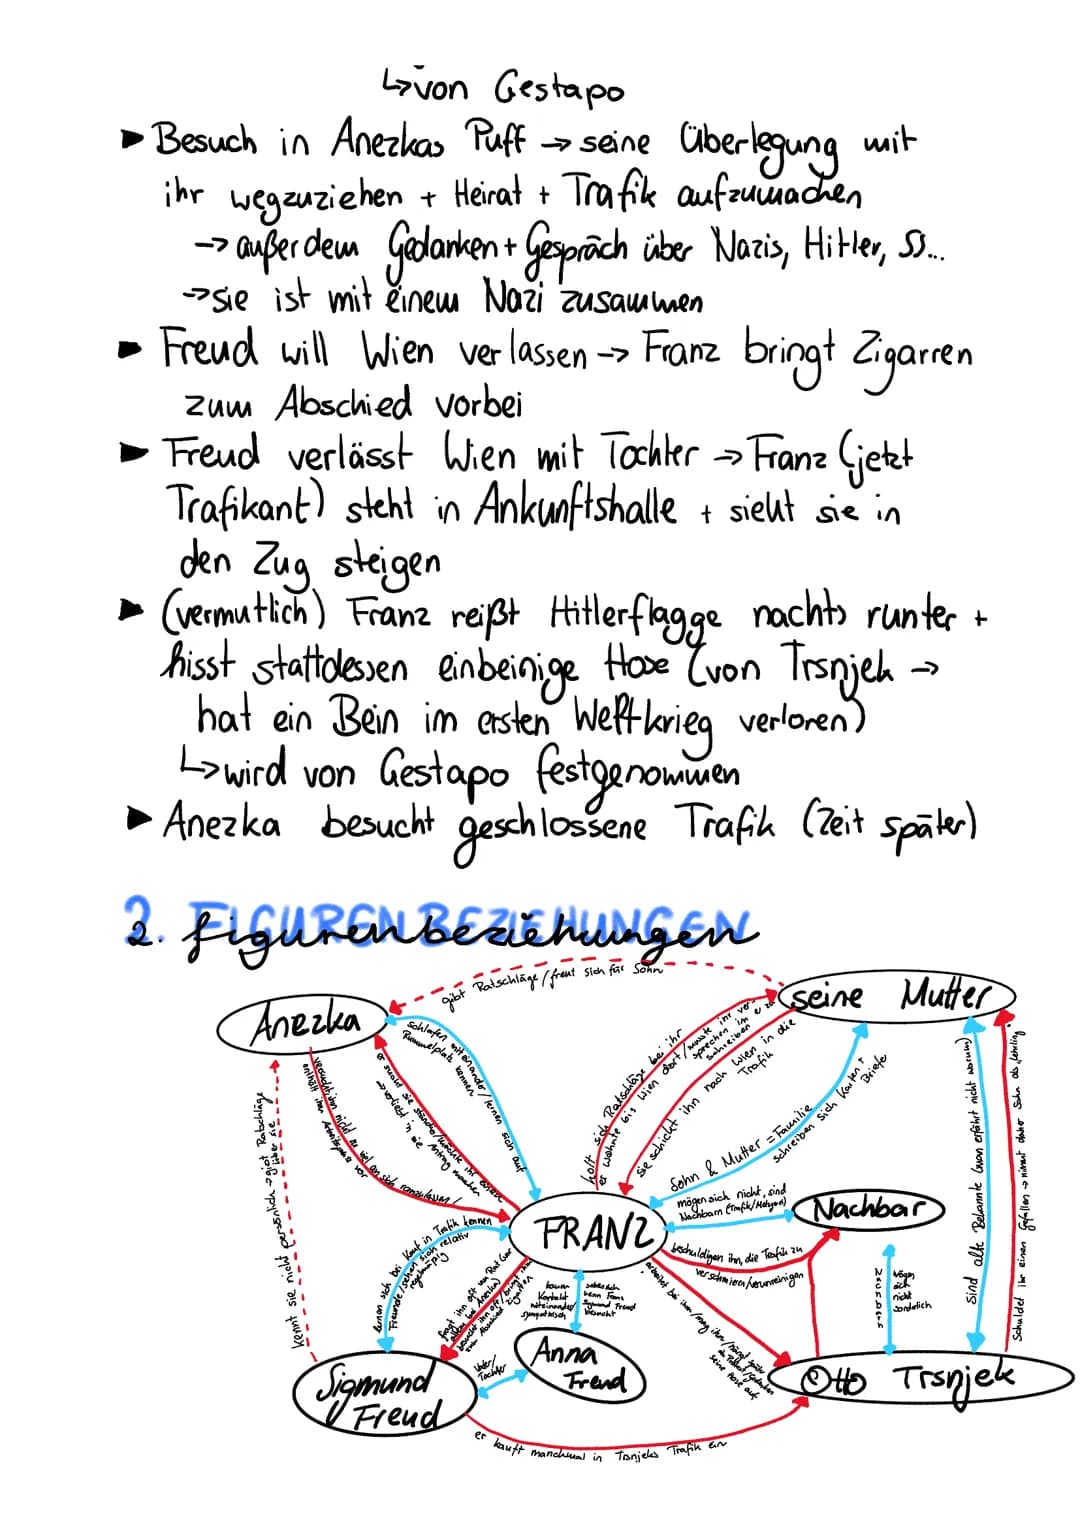 ↳von Gestapo
▶ Besuch in Anezkas Puff → seine Überlegung mit
ihr wegzuziehen + Heirat + Trafik aufzumachen
→ außerdem Gedanken + Gespräch über Nazis, Hitler, SS...
→ sie ist mit einem Nazi zusammen
▶ Freud will Wien verlassen → Franz bringt Zigarren
zum Abschied vorbei
▶ Freud verlässt Wien mit Tochter → Franz (jetzt
Trafikant) steht in Ankunftshalle + sieht sie in
den Zug steigen
▶ (vermutlich) Franz reißt Hitlerflagge nachts runter +
hisst stattdessen einbeinige Hose (von Trsnjek →
hat ein Bein im ersten Weltkrieg verloren)
↳ wird von Gestapo festgenommen
▶ Anezka besucht geschlossene Trafik (Zeit später)
2. FIGURENBEZIEHUNGEN
2. figurenbeziehungen
gibt Ratschläge / freut sich für Sohn
Anezka
seine Mutter
schlafen miteinander / lernen sich auf
Rummelplatz kennen
er sucht sie ständig / möchte ihr einen
Antrag machen
→ verliebt in sie
versucht ihn nicht zu viel an sich ranzulassen /
enthält ihm Arbeitgeber vor
holt sich Ratschläge bei ihr
er wohnte bis Wien dort / musste ihr versprechen im
schreiben
sie schickt ihn nach Wien in die
Trafik
Sohn & Mutter = Familie
schreiben sich Karten + Briefe
sind alte Bekannte (man erfährt nicht warum)
Schuldet ihr einen Gefallen → nimmt daher Sohn als Lehrling
kennt sie nicht persönlich → gibt Ratschläge
über sie
mögen sich nicht, sind
Nachbarn (Trafik/Metzgerei)
Nachbar
FRANZ
beschuldigen ihn, die Trafik zu
verschmieren/verunreinigen
Nachbarn
mögen
sich
nicht
sonderlich
lernen sich bei Kauf in Trafik kennen
Freunde / sehen sich relativ
regelmäßig
fragt ihn oft um Rat (vor
allem bei Anezka)
besucht ihn oft / bringt ihm
Zigarren
zum Abschied
kaum
Kontakt
miteinander/
sympathisch
sehen sich
wenn Franz
Sigmund Freud
besucht
arbeitet bei ihm / mag ihn / hängt später
seine Hose auf
Vater/
Tochter
Anna
Freud
Sigmund
Freud
Otto Trsnjek
er kauft manchmal in Trsnjeks Trafik ein